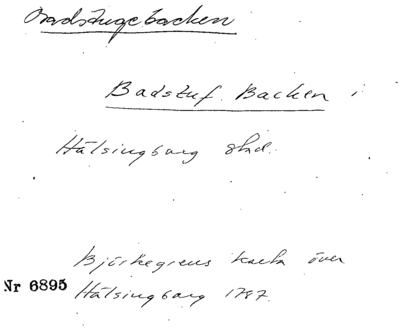 Badstugebacken
Badstuf. Backen i
Hälsingborg stad.
Björkegrens karta över
Nr 6895
Hälsingborg 1787.